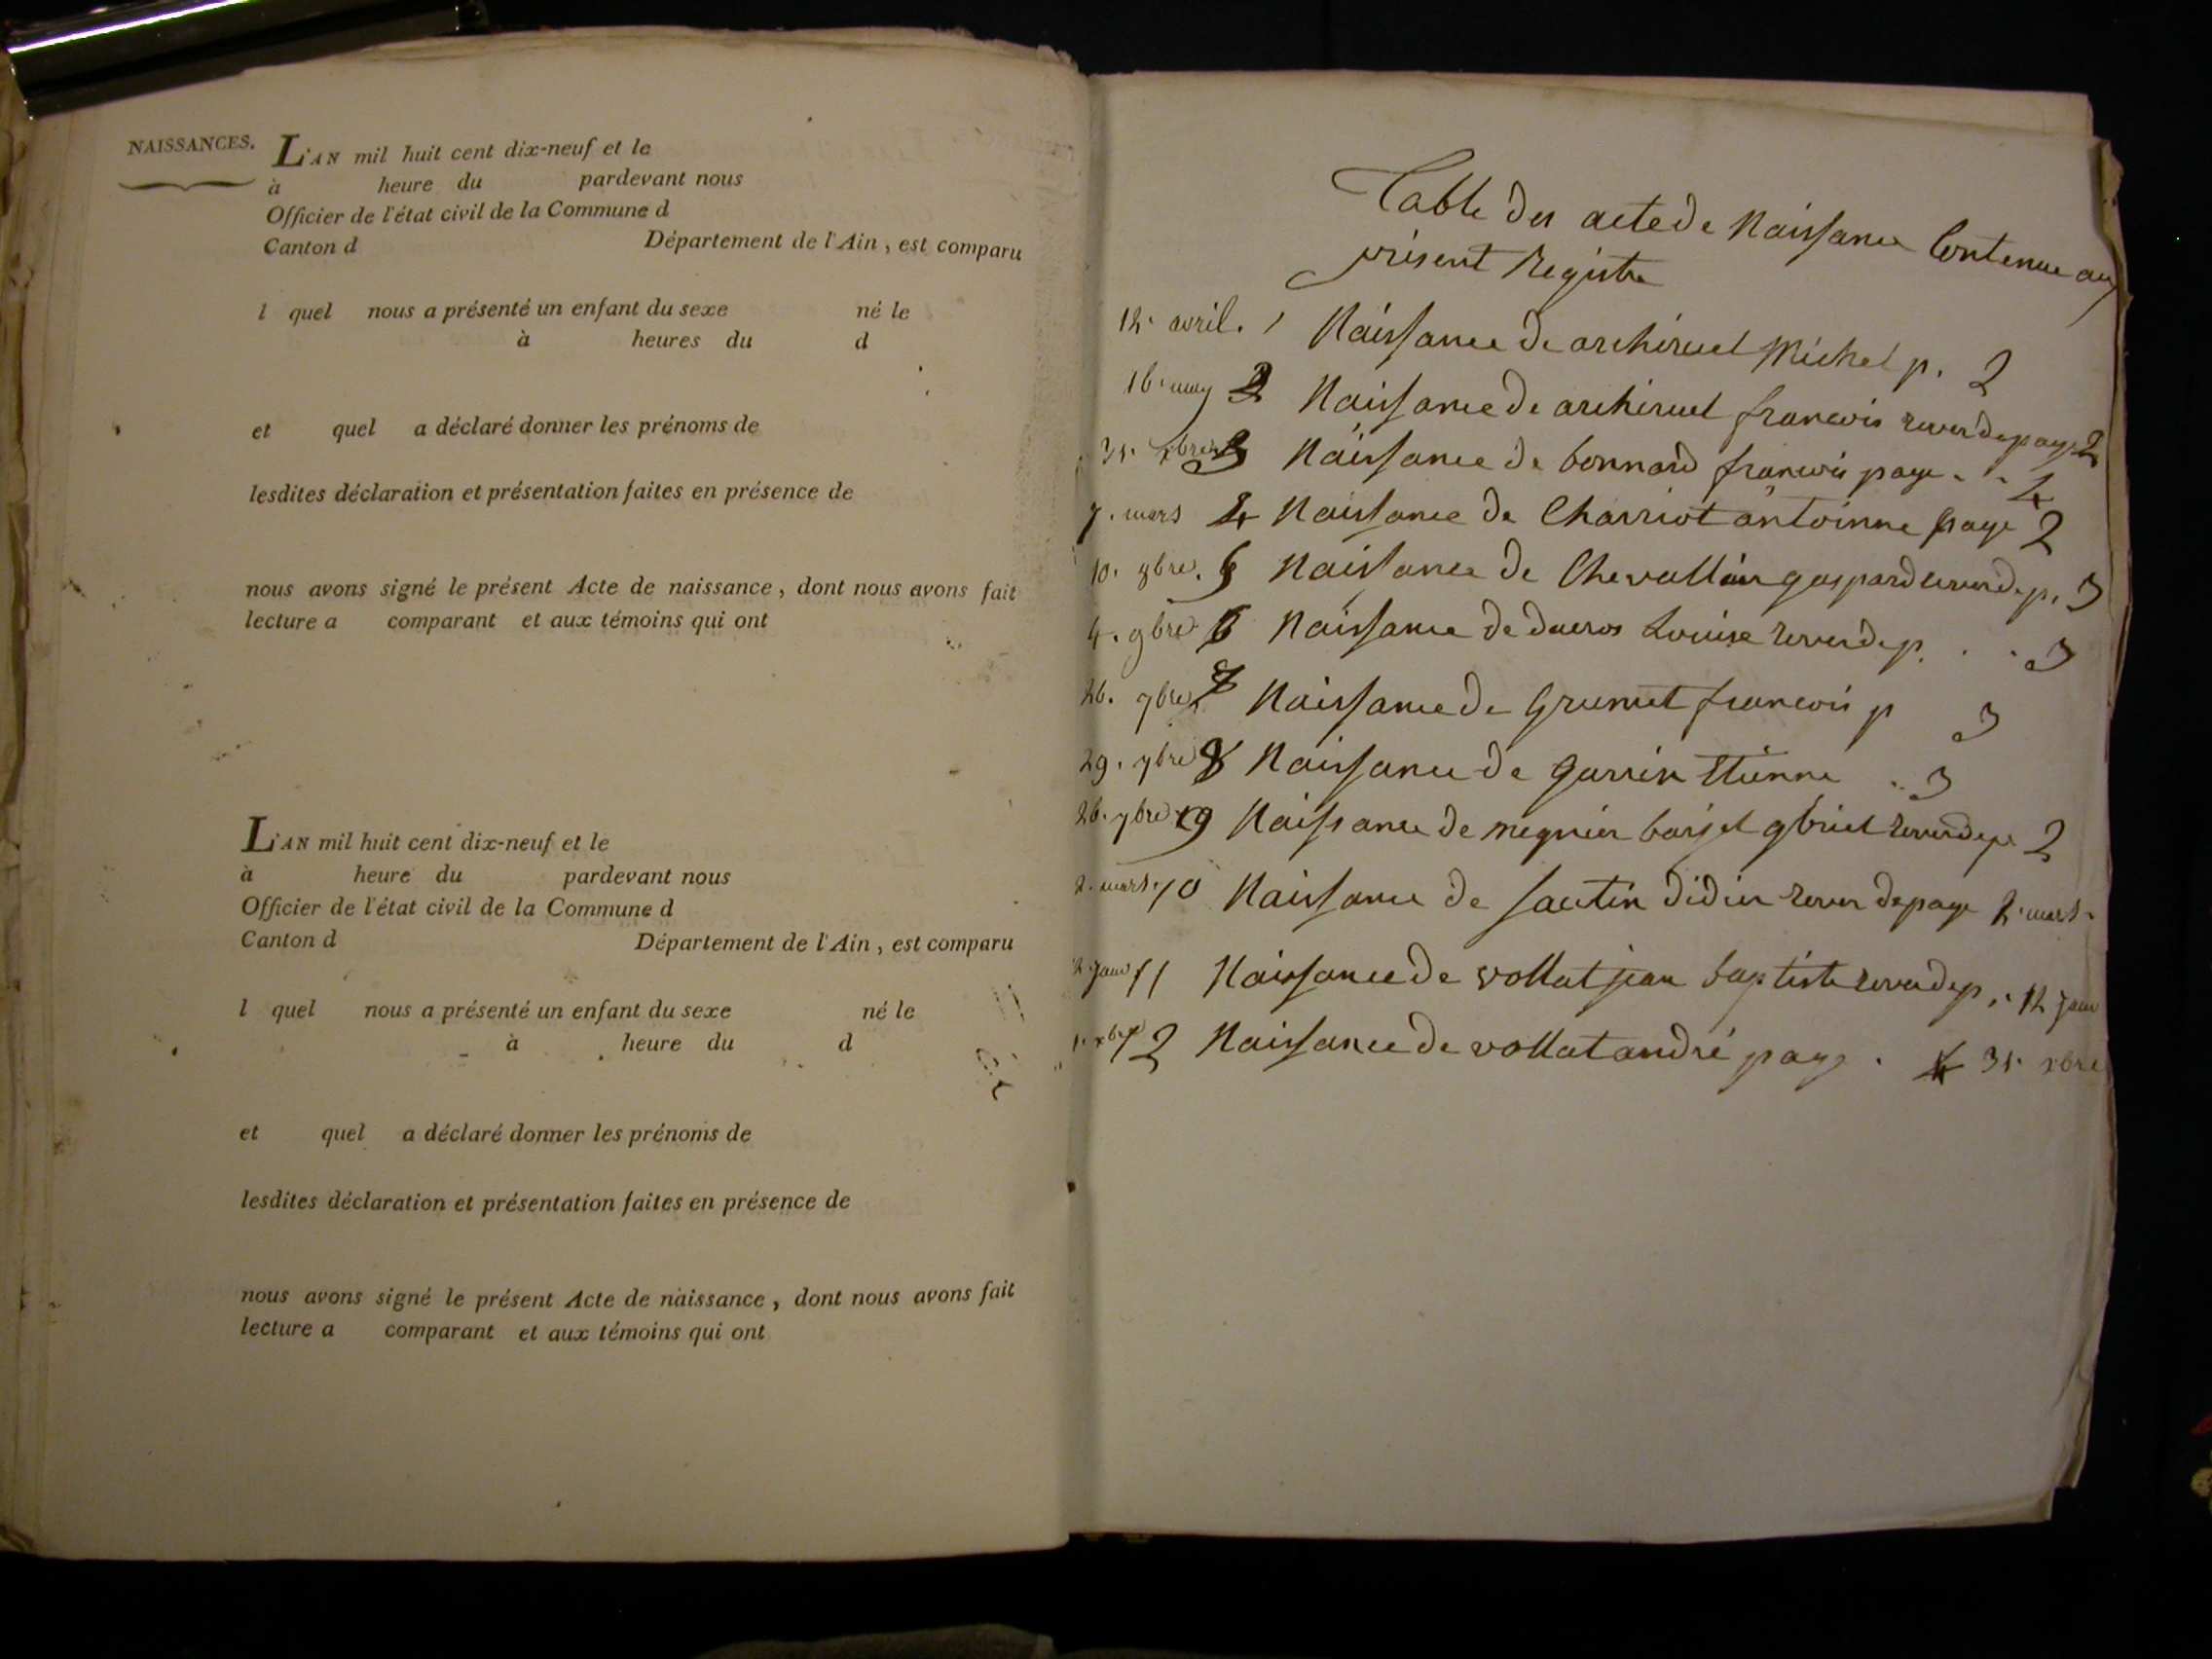 NAISSANCES.
L'AN mil huit cent dix-neuf et le
à heure du pardevant nous
Officier de l'état civil de la Commune d
Canton d Département de l'Ain, est comparu
l quel nous a présenté un enfant du sexe né le
à heures du d
et quel a déclaré donner les prénoms de
lesdites déclaration et présentation faites en présence de
nous avons signé le présent Acte de naissance, dont nous avons fait
lecture a comparant et aux témoins qui ont
L'AN mil huit cent dix-neuf et le
à heure du pardevant nous
Officier de l'état civil de la Commune d
Canton d Département de l'Ain, est comparu
l quel nous a présenté un enfant du sexe né le
à heure du d
et quel a déclaré donner les prénoms de
lesdites déclaration et présentation faites en présence de
nous avons signé le présent Acte de naissance, dont nous avons fait
lecture a comparant et aux témoins qui ont
Table des acte de Naissance Contenue au
présent Registre
12. avril. 1 Naissance de archiruel Michel p. 2
16. may 2 Naissance de archiruel francois rever de page 2
31. xbre 3 Naissance de bonnard francois page 4
7. mars 4 Naissance de Charriot antoinne page 2
10. 8bre. 5 Naissance de Chevallier gaspard rever de p. 3
4. 9bre 6 Naissance de ducros Louise rever de p. 3
26. 7bre 7 Naissance de Grumet francois p 3
29. 7bre 8 Naissance de Garrin Etienne 3
26. 7bre 9 Naissance de megnier gbriel rever de p 2
2. mars. 10 Naissance de Sautin didier rever de page 2. mars.
12 janv 11 Naissance de vollat jean baptiste rever de p. 12 janv
1. xbre 12 Naissance de vollat andré page. 4 31. xbre